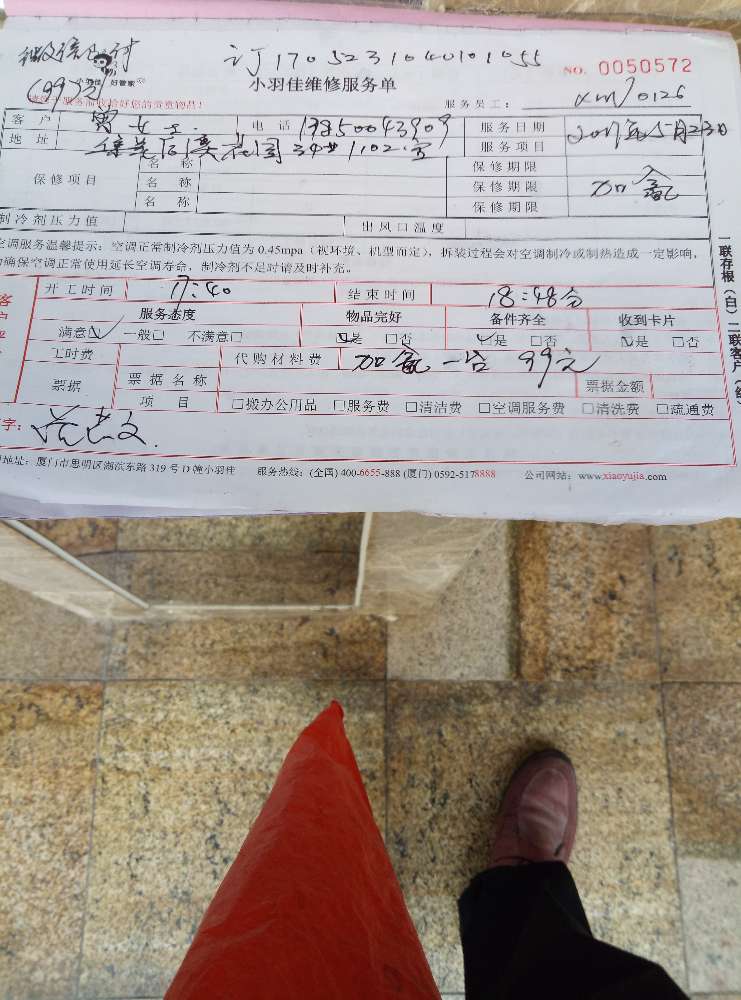 微信已付 订1705231040101055
(99元) 小羽佳 好管家 小羽佳维修服务单 NO. 0050572
服务前收拾好您的贵重物品! 服务员工: xm70126
客户 女士 电话 13850043909 服务日期 2017年5月23日
地址 花园34#1102室 服务项目 加氟
保修项目 名称 保修期限
名称 保修期限
名称 保修期限
制冷剂压力值 出风口温度
空调服务温馨提示: 空调正常制冷剂压力值为 0.45mpa (视环境、机型而定), 拆装过程会对空调制冷或制热造成一定影响,
为确保空调正常使用延长空调寿命, 制冷剂不足时请及时补充。
开工时间 17:40 结束时间 18:48分
服务态度 物品完好 备件齐全 收到卡片
满意☑ 一般□ 不满意□ ☑是 □否 ☑是 □否 ☑是 □否
工时费 代购材料费 加氟一台 99元
票据 票据名称 票据金额
项目 □搬办公用品 □服务费 □清洁费 □空调服务费 □清洗费 □疏通费
字:
地址: 厦门市思明区湖滨东路 319 号 D 幢小羽佳 服务热线: (全国) 400-6655-888 (厦门) 0592-5178888 公司网站: www.xiaoyujia.com
一联存根(白) 二联客户(红)